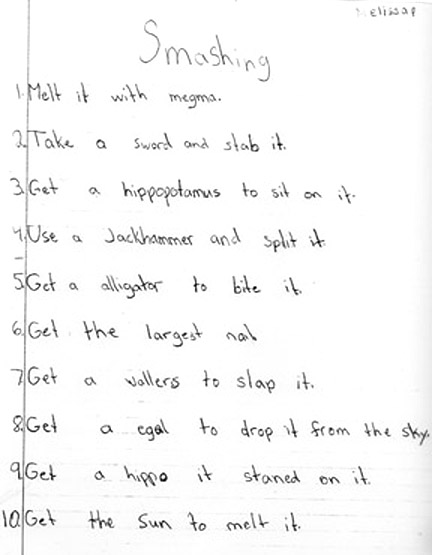 Melissa P
Smashing
1. Melt it with megma.
2. Take a sword and stab it.
3. Get a hippopotamus to sit on it.
4. Use a Jackhammer and split it
5. Get a alligator to bite it.
6. Get the largest nail
7. Get a wallers to slap it.
8. Get a egal to drop it from the sky.
9. Get a hippo it staned on it.
10. Get the Sun to melt it.